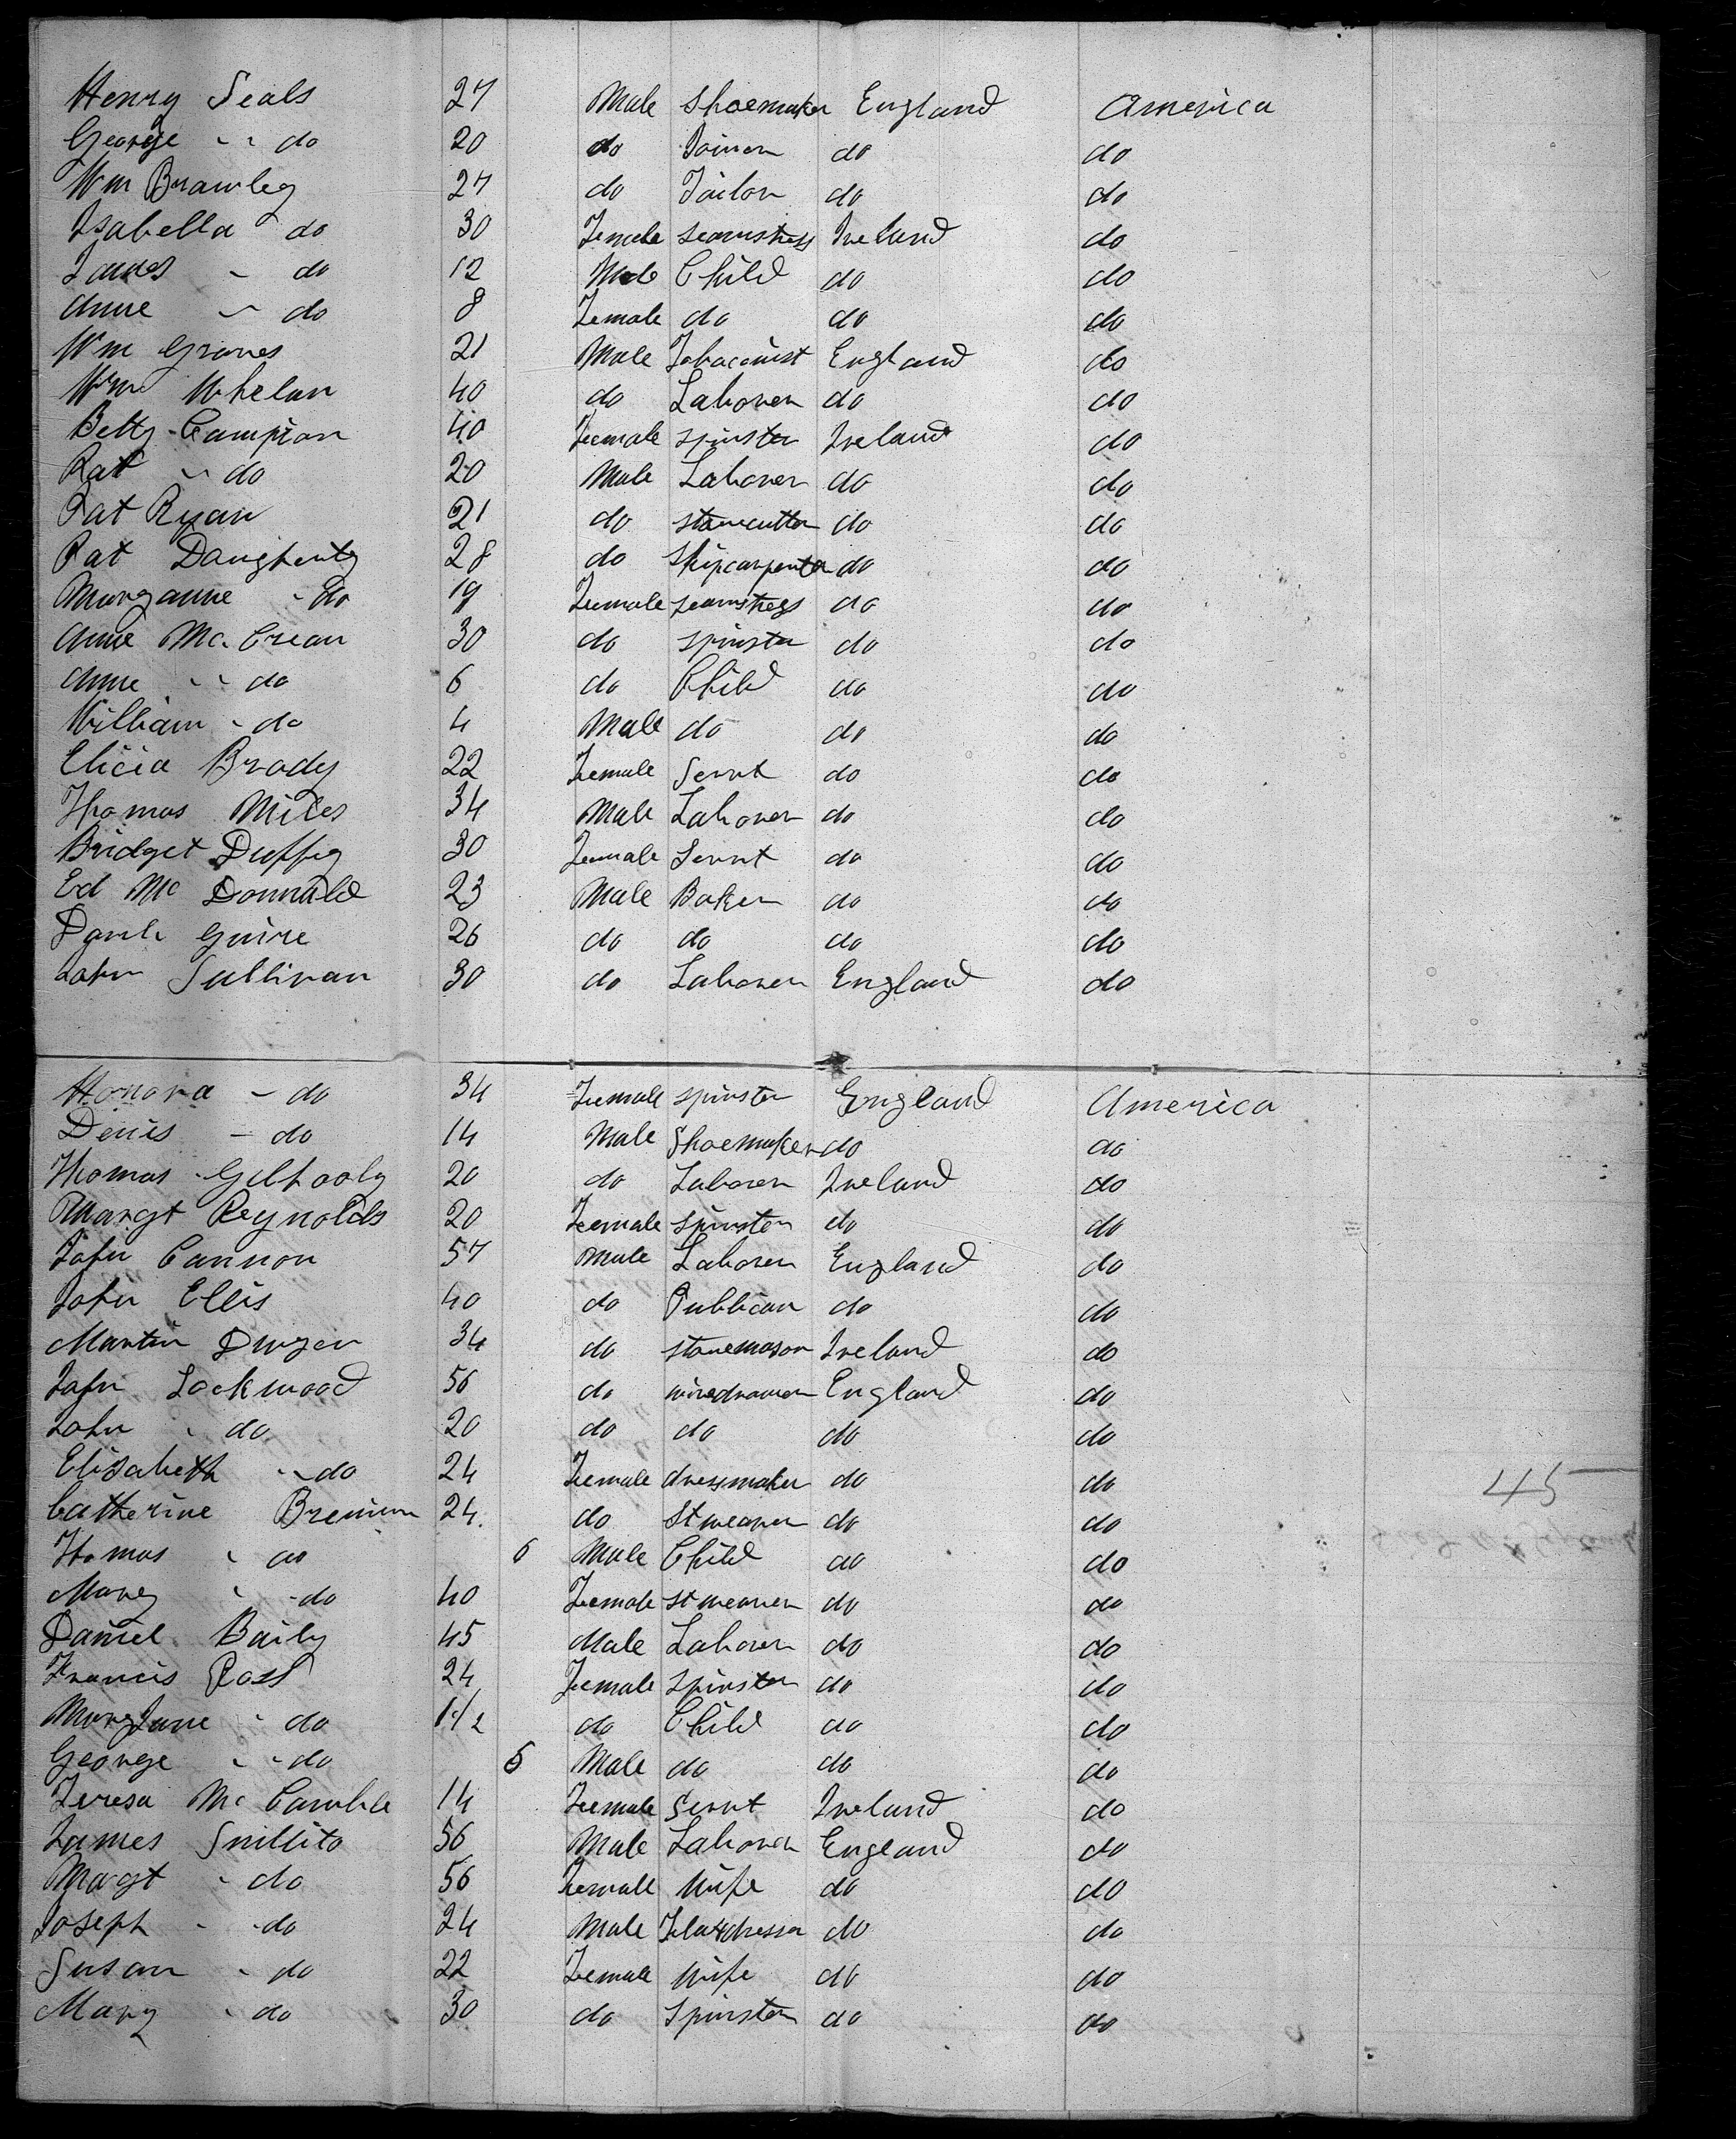 Henry Seals 27 Male Shoemaker England America
George " do 20 do Joiner do do
Wm Brawley 27 do Tailor do do
Isabella do 30 Female seamstress Ireland do
James " do 12 Male Child do do
Anne " do 8 Female do do do
Wm Graves 21 Male Tobaconist England do
Wm Whelan 40 do Laborer do do
Betty Campion 40 Female spinster Ireland do
Pat " do 20 Male Laborer do do
Pat Ryan 21 do stonecutter do do
Pat Daugherty 28 do Shipcarpenter do do
Marganne " do 19 Female seamstress do do
Anne Mc. Crean 30 do spinster do do
Anne " do 6 do Child do do
William " do 4 Male do do do
Elicia Brady 22 Female Servt do do
Thomas Miles 34 Male Laborer do do
Bridget Duffy 30 Female Servt do do
Ed Mc Donnald 23 Male Baker do do
Guire 26 do do do do
John Sullivan 30 do Laborer England do
Honora - do 34 Female spinster England America
Denis - do 14 Male Shoemaker do do
Thomas Gilhooly 20 do Laborer Ireland do
Margt Reynolds 20 Female Spinster do do
John Cannon 57 Male Laborer England do
John Ellis 40 do Publican do do
Martin 34 do stonemason Ireland do
John Lockwood 56 do wiredrawer England do
John " do 20 do do do do
Elisabeth " do 24 Female dressmaker do do
Catherine 24 do Stweaver do do
Thomas " do 6 Male Child do do
Mary " do 40 Female Stweaver do do
Daniel Baily 45 Male Laborer do do
Francis Ross 24 Female Spinster do do
MaryJane " do 1 1/2 do Child do do
George " do 6 Male do do do
Teresa Mc 14 Female Servt Ireland do
James Snillito 56 Male Laborer England do
Margt " do 56 Female Wife do do
Joseph " do 24 Male Flaxdresser do do
Susan " do 22 Female Wife do do
Mary " do 30 do Spinster do do
45